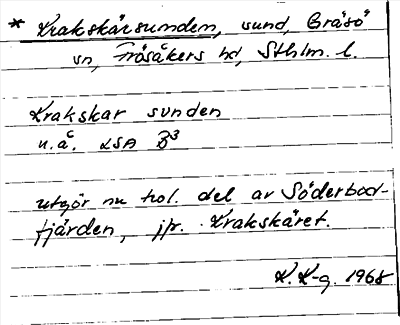 * Krakskärsunden, sund, Gräsö
sn, Frösåkers hd, Sthlm. l.
Krakskar sunden
u.å. LSA B3
utgör nu tol. del av Söderboda-
fjärden, jfr. Krakskäret.
K. K-g. 1968